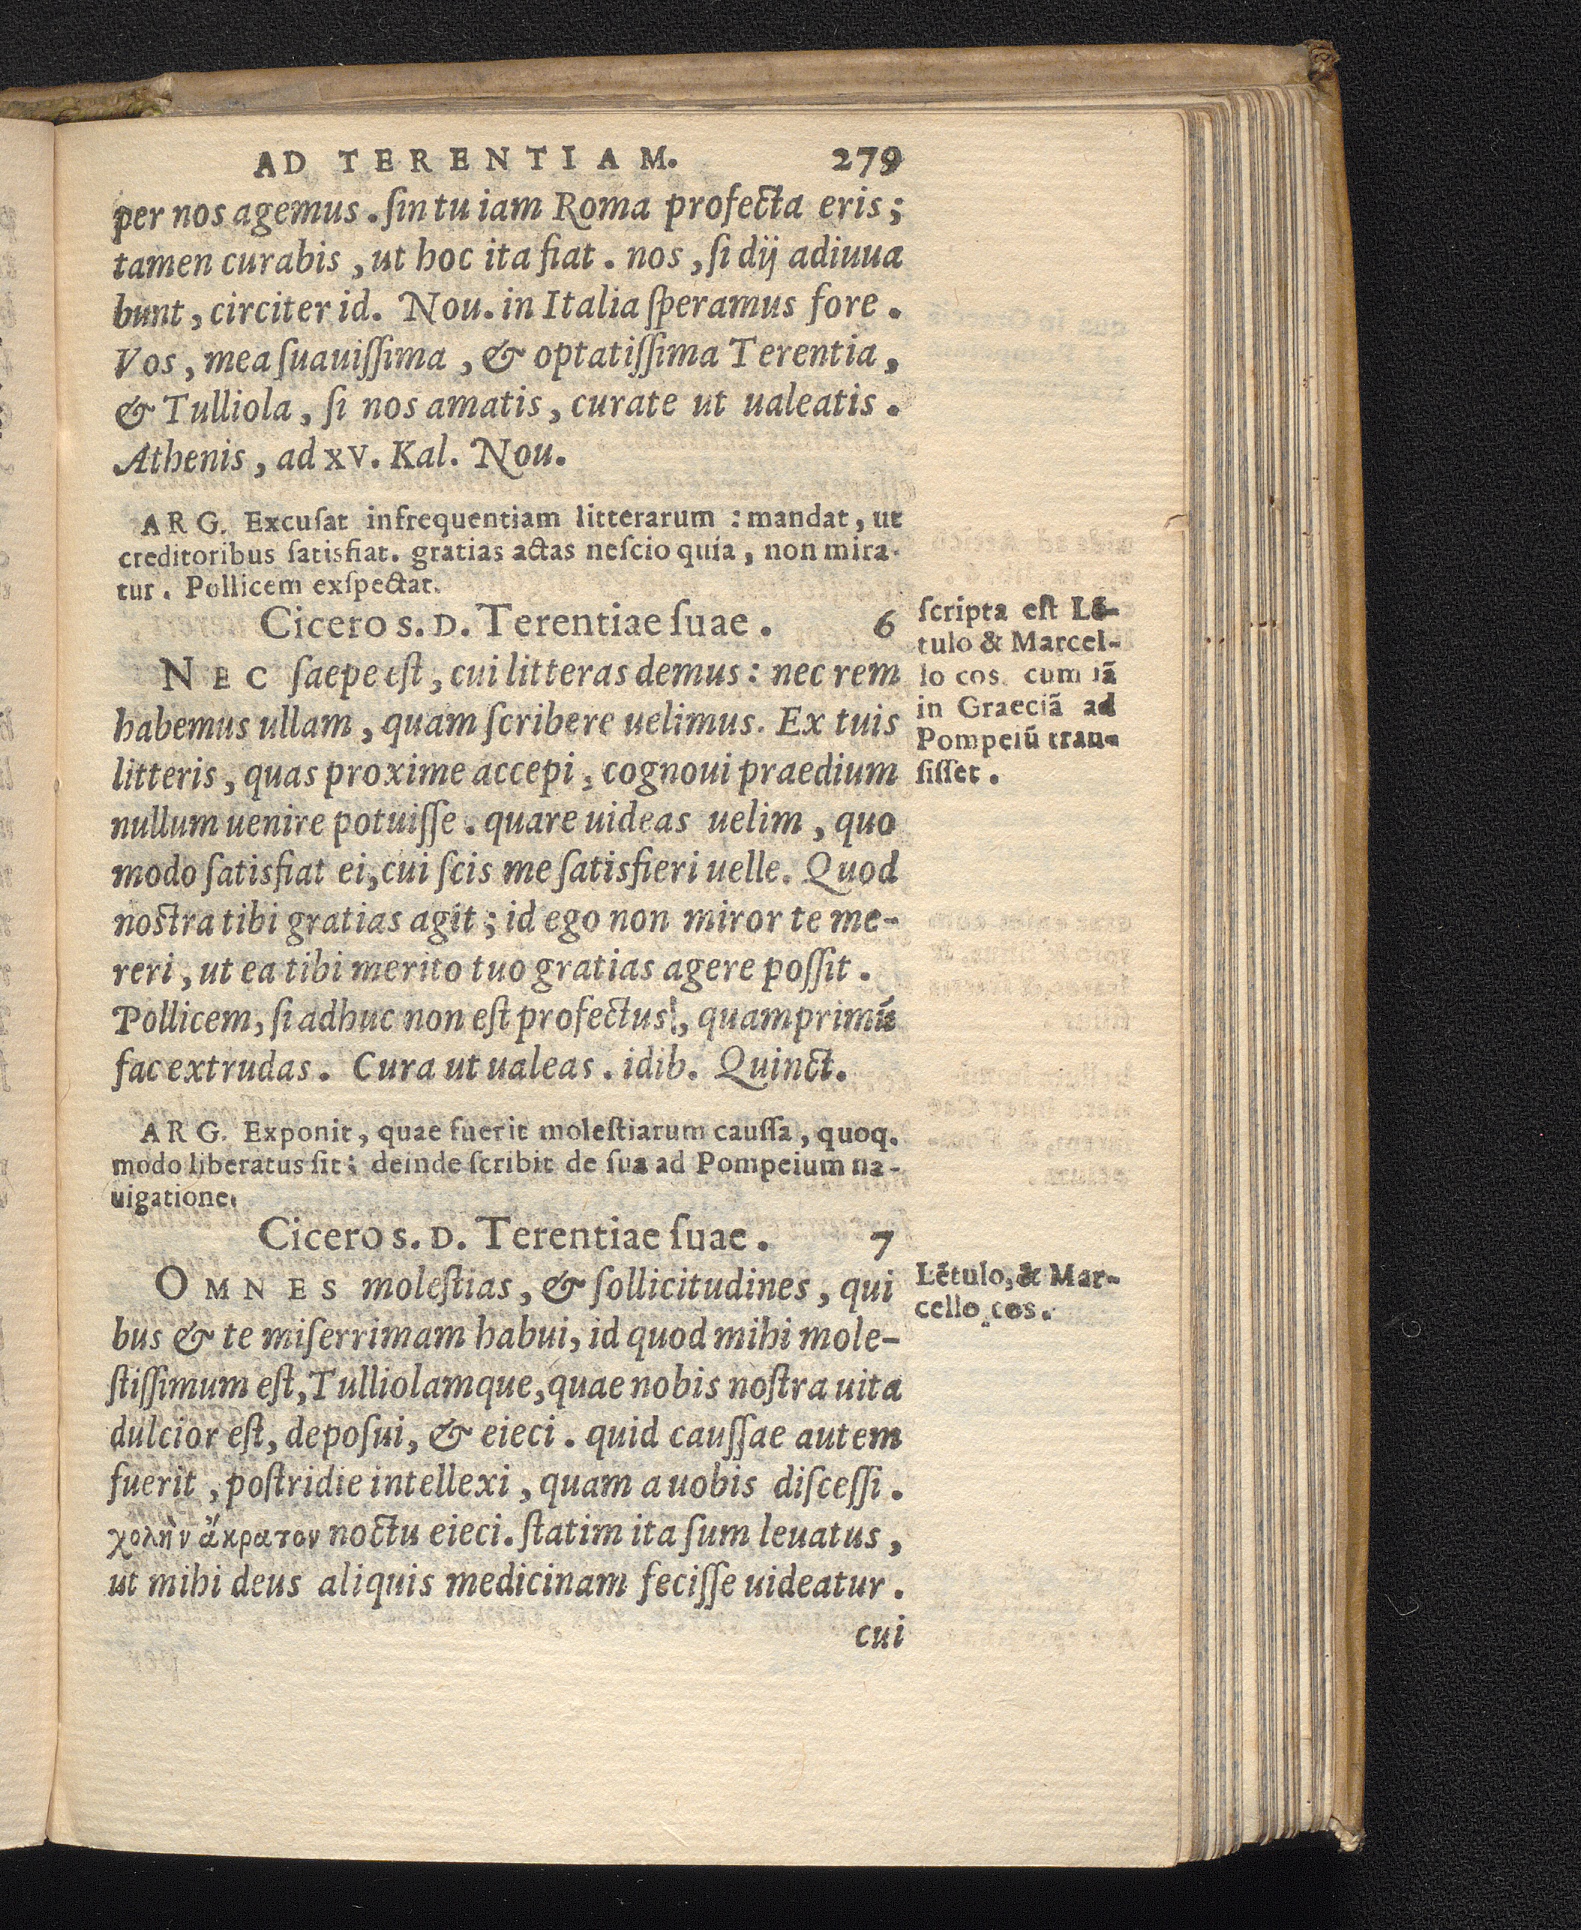 AD TERENTIAM. 279
per nos agemus. ſin tu iam Roma profecta eris;
tamen curabis, ut hoc ita fiat. nos, ſi dij adiuua
bunt, circiter id. Nou. in Italia ſperamus fore.
Vos, mea ſuauiſſima, & optatiſſima Terentia,
& Tulliola, ſi nos amatis, curate ut ualeatis.
Athenis, ad XV. Kal. Nou.
ARG. Excuſat infrequentiam litterarum: mandat, ut
creditoribus ſatisfiat. gratias actas neſcio quia, non mira-
tur. Pollicem exſpectat.
Cicero s. D. Terentiae ſuae. 6
NEC ſaepe eſt, cui litteras demus: nec rem
habemus ullam, quam ſcribere uelimus. Ex tuis
litteris, quas proxime accepi, cognoui praedium
nullum uenire potuiſſe. quare uideas uelim, quo
modo ſatisfiat ei, cui ſcis me ſatisfieri uelle. Quod
noſtra tibi gratias agit; id ego non miror te me-
reri, ut ea tibi merito tuo gratias agere poſſit.
Pollicem, ſi adhuc non eſt profectus, quamprimū
fac extrudas. Cura ut ualeas. idib. Quinct.
ſcripta eſt Lē-
tulo & Marcel-
lo cos. cum iā
in Graeciā ad
Pompeiū tran-
ſiſſet.
ARG. Exponit, quae fuerit moleſtiarum cauſſa, quoq.
modo liberatus ſit: deinde ſcribit de ſua ad Pompeium na-
uigatione.
Cicero s. D. Terentiae ſuae. 7
OMNES moleſtias, & ſollicitudines, qui
bus & te miſerrimam habui, id quod mihi mole-
ſtiſſimum eſt, Tulliolamque, quae nobis noſtra uita
dulcior eſt, depoſui, & eieci. quid cauſſae autem
fuerit, poſtridie intellexi, quam a uobis diſceſſi.
χολὴν ἄκρατον noctu eieci. ſtatim ita ſum leuatus,
ut mihi deus aliquis medicinam feciſſe uideatur.
Lētulo, & Mar-
cello cos.
cui